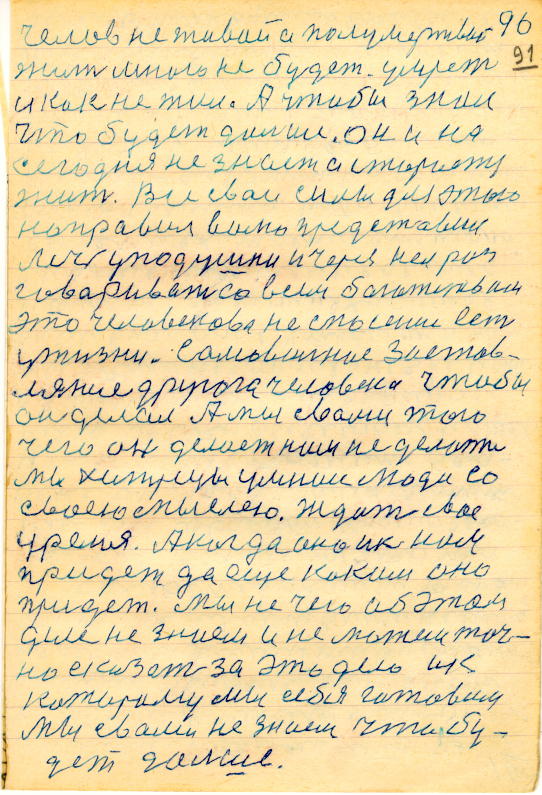 96
91
челов не живой а полумертвой
жит много не будет. умрет
и как не жил. А чтобы знал
что будет дальше. он и на
сегодня не знает а старается
жит. Все свои силы для этого
направил вам представил
у подушки и через нея раз
говариват со всем богатством
это человекова не спасение ест
у жизни. Самовольное застав-
ляние другога человека чтобы
он делал А мы свами того
чего он делает нам не делать
мы хитрецы умнои люди со
своею мыслею. ждать свое
время. А когда оно ик нам
придет да еще каким оно
придет. Мы не чего об этом
деле не знаем и не можем точ-
но сказат за это дело ик
которому мы себя готовим
Мы свами не знаем что бу-
дет дальше.